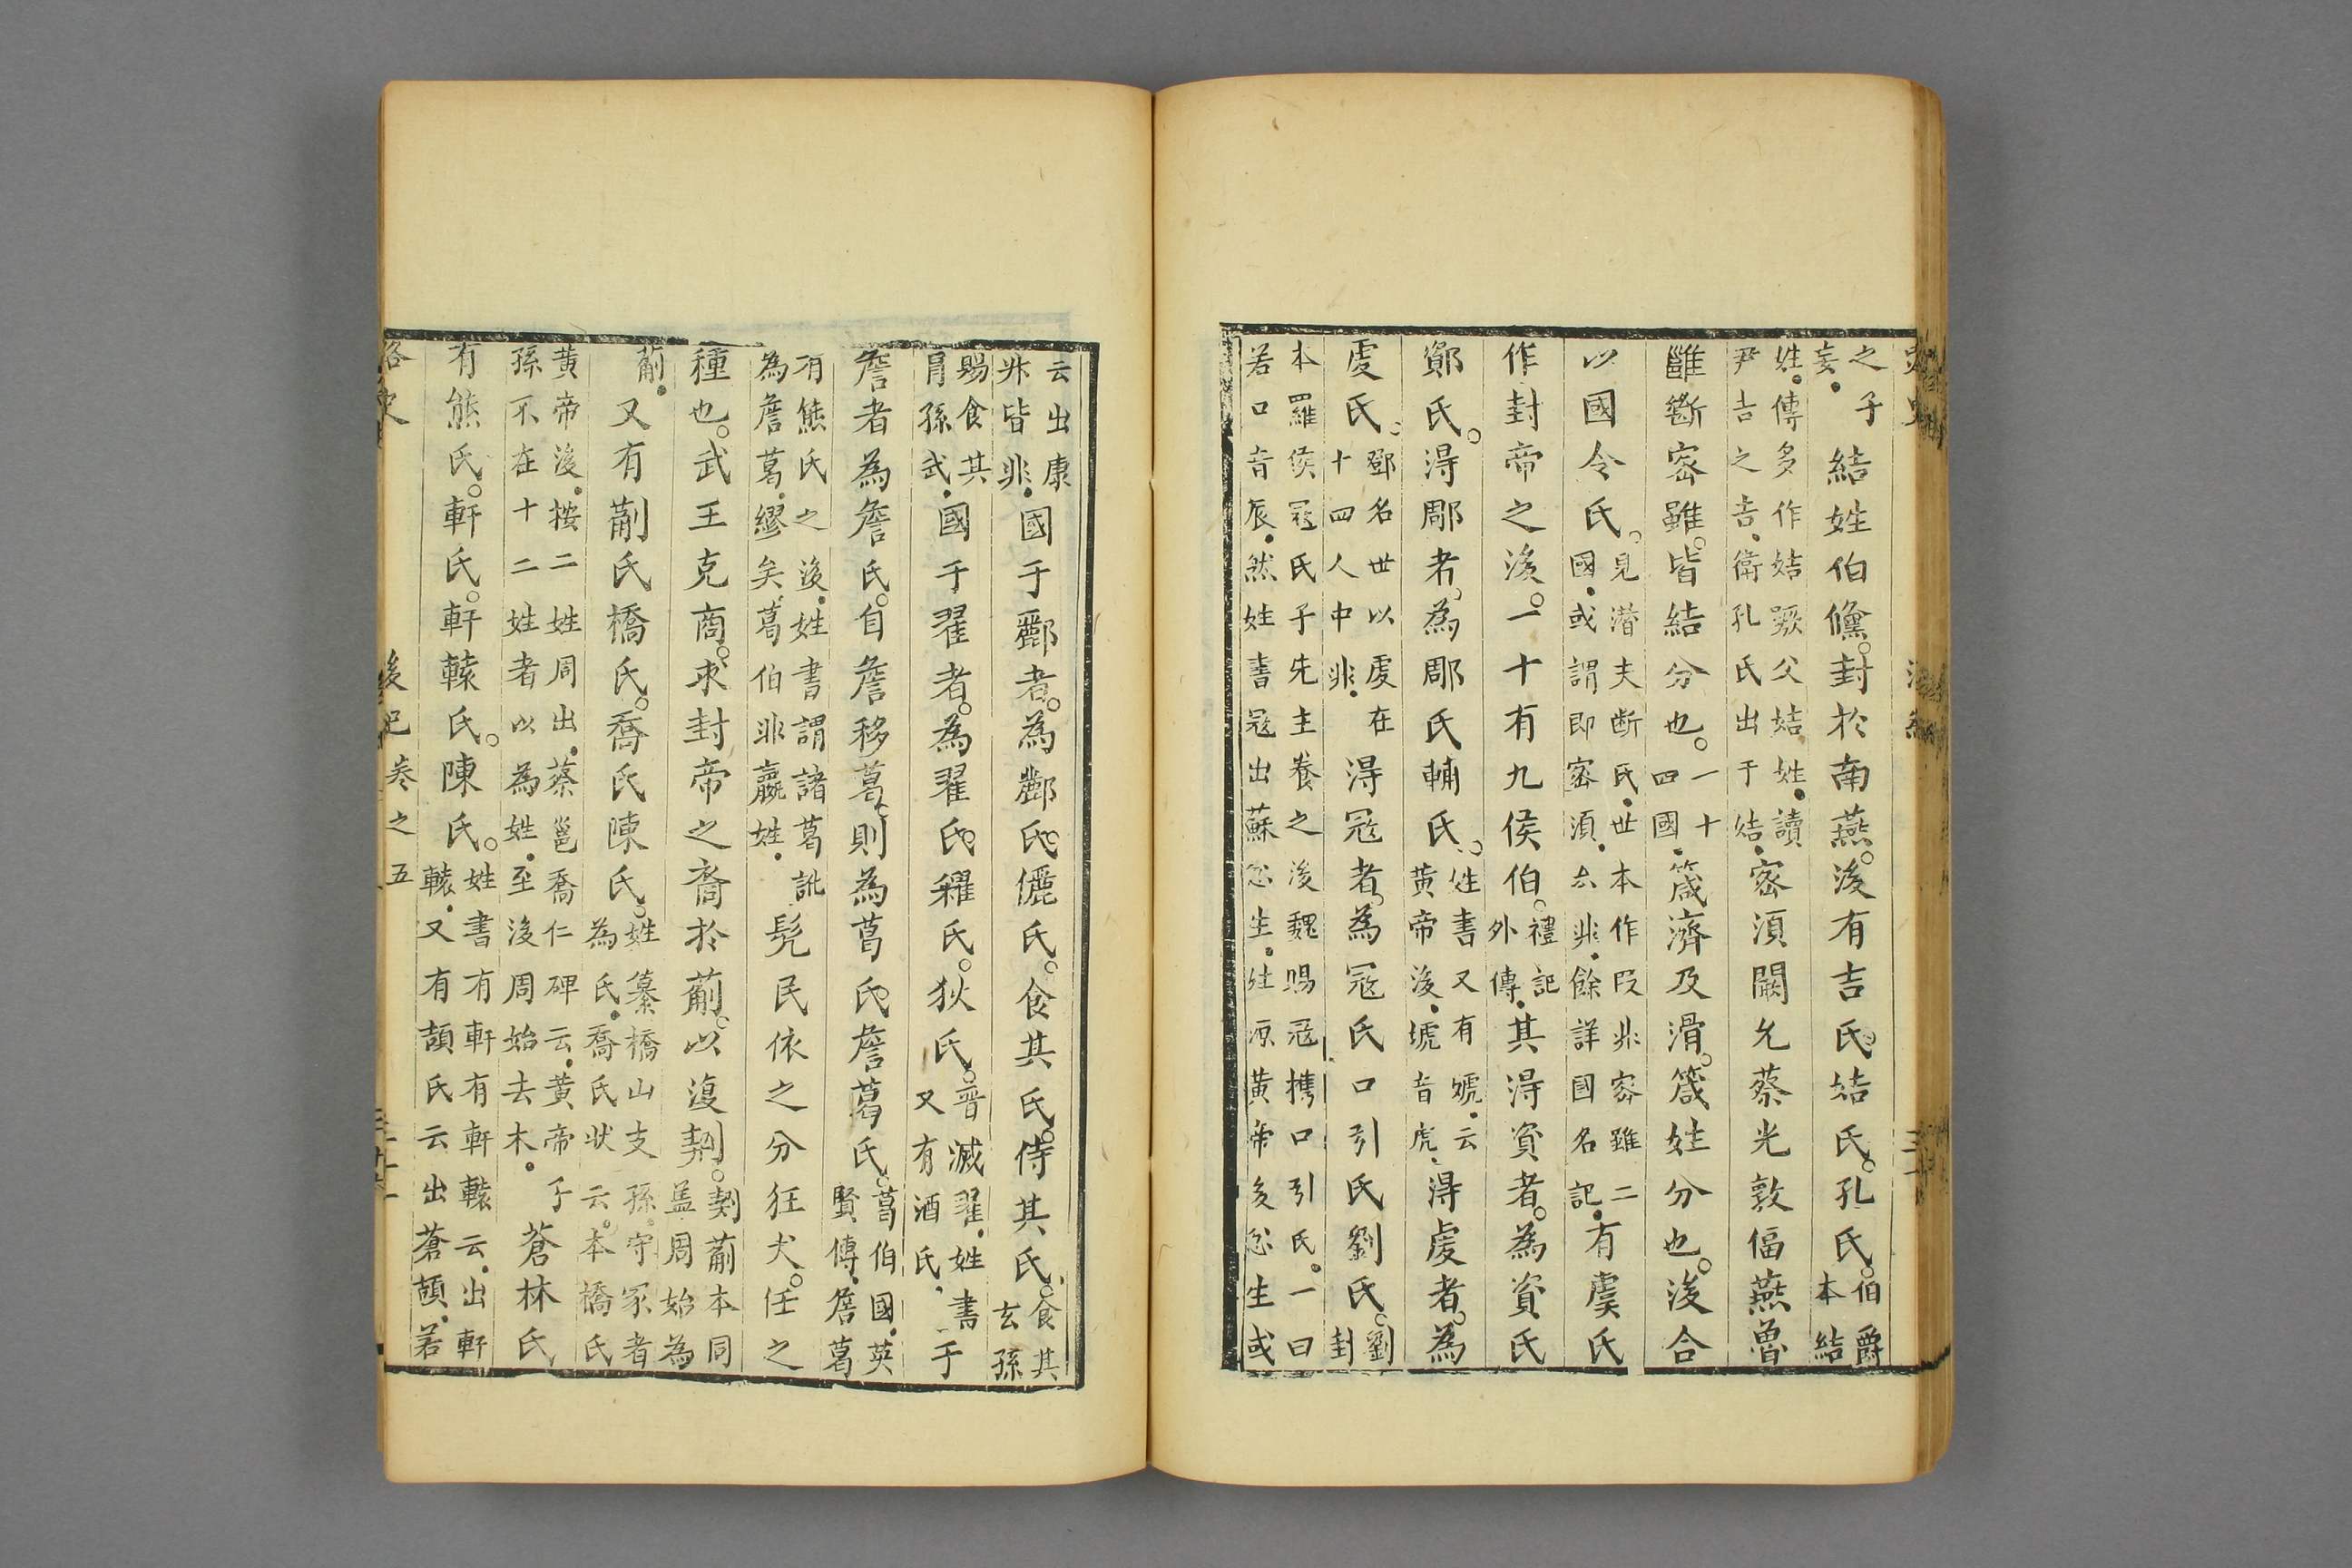 之子妄。結姓伯儵。封於南燕。後有吉氏。姞氏。孔氏。伯爵本結
姓。傳多作姞蹶父姞姓。讀尹吉之吉、衛孔氏出于姞。密須闞允蔡光敦偪燕魯
雝斷密雖。皆結分也。一十四國。箴濟及滑。箴姓分也。後合
以國令氏。見潜夫断氏。世本作段非密雖二國。或謂即密須。厺非。餘詳國名記。有虞氏
作封帝之後。一十有九侯伯。禮記外傳。其得資者。為資氏
氏。得郮者。為郮氏輔氏。姓書又有。云黃帝後。琥音虎。得虔者。為
虔氏。鄧名世以虔在十四人中非。得寇者。為寇氏口引氏劉氏。劉封
本羅侯冦氏子先主養之後魏賜冦攜口引氏。一曰若口音辰。然姓書冦出蘇忿生。姓源黃帝後忿生或
云出康非皆非。國于酈者。為酈氏。儷氏。食其氏。侍其氏。食其玄孫
賜食其肙孫武。國于翟者。為翟氏。糴氏。狄氏。晉滅翟。姓書又有酒氏。于
詹者為詹氏。自詹移葛。則為葛氏。詹葛氏。葛伯國。英賢傳。詹葛
有熊氏之後。姓書謂諸葛訛為詹葛。繆矣。葛伯非嬴姓。髡民依之分狂犬。任之
種也。武王克商。求封帝之裔於薊。以復契。契薊本同盖周始為
薊。又有薊氏橋氏。喬氏陳氏。姓纂橋山支孫。守冢者為氏。喬氏狀云。本橋氏
黃帝後。按二姓周出。蔡邕喬仁碑云。黃帝子孫不在十二姓者以為姓。至後周始去木。蒼林氏
有熊氏。軒氏。軒轅氏。陳氏。姓書有軒有軒轅云。出軒轅。又有頡氏云出蒼頡。若
路史 後記卷之五